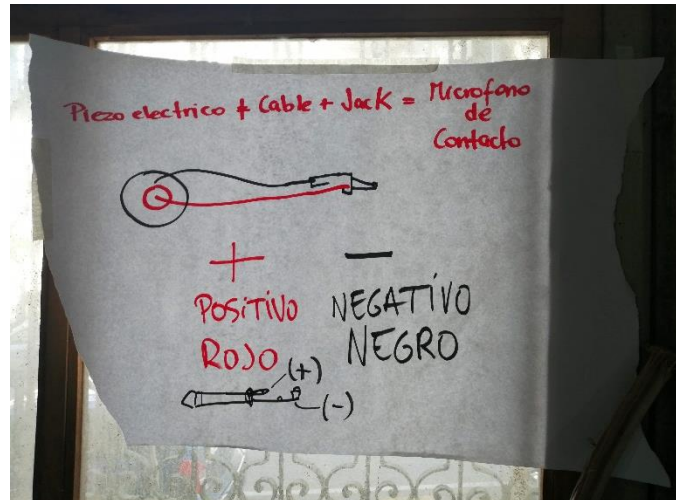 Piezo electrico + Cable + Jack = Microfono
de
Contacto
+ −
POSITIVO NEGATIVO
ROJO NEGRO
(+)
(-)